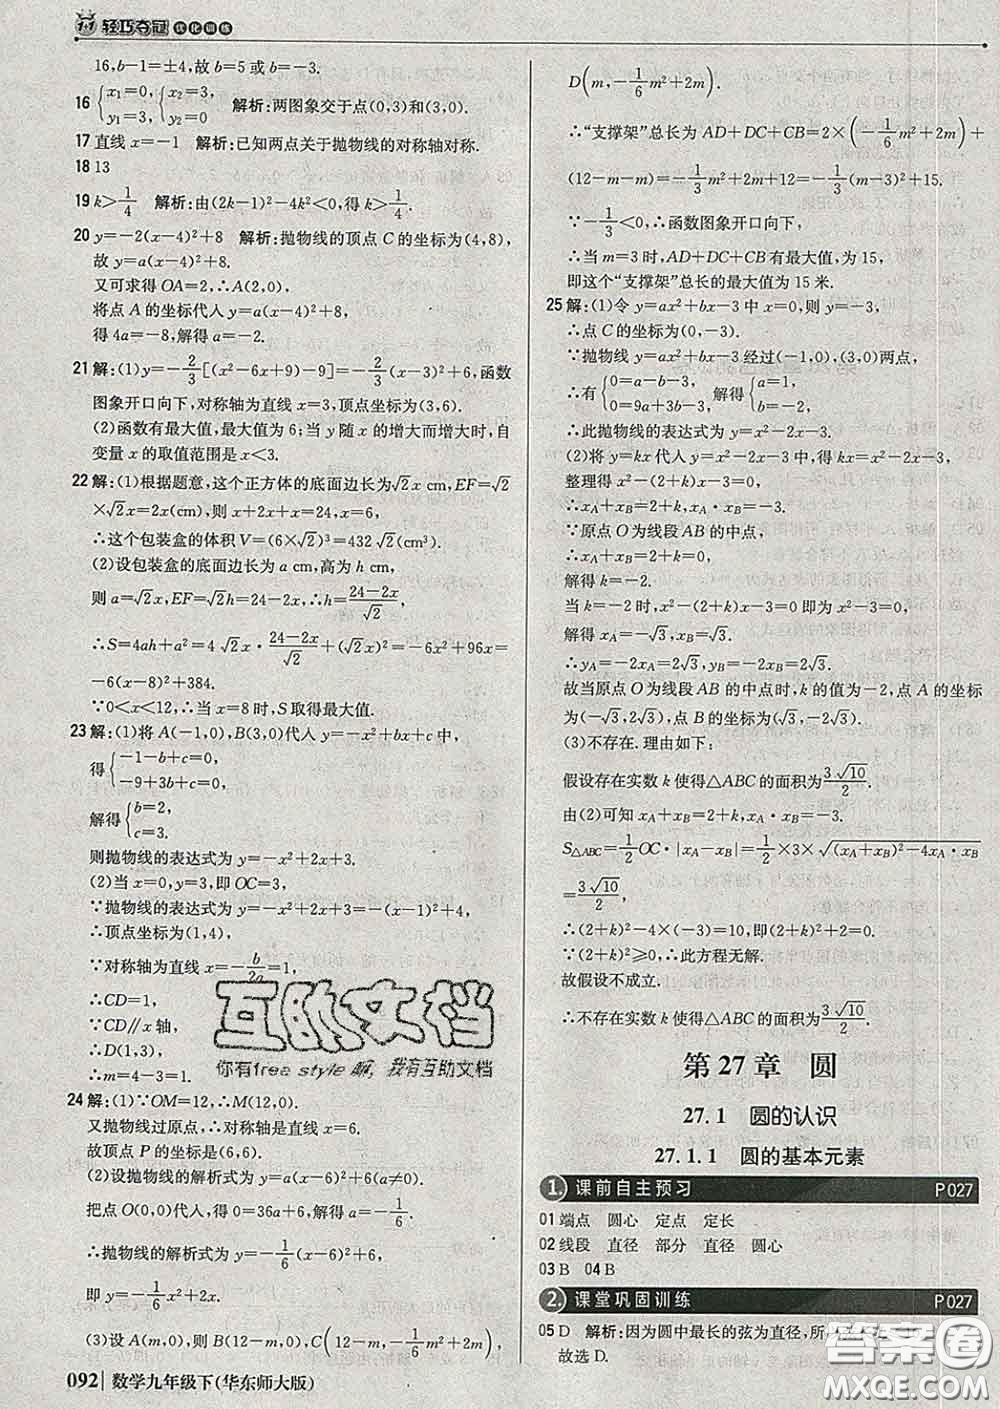 1+1 轻巧夺冠 优化训练
16,b-1=±4,故 b=5 或 b=-3.
16 {x₁=0, y₁=3, {x₂=3, y₂=0 解析:两图象交于点(0,3)和(3,0).
17 直线 x=-1 解析:已知两点关于抛物线的对称轴对称.
18 13
19 k>1/4 解析:由(2k-1)²-4k²<0,得 k>1/4.
20 y=-2(x-4)²+8 解析:抛物线的顶点 C 的坐标为(4,8),
故 y=a(x-4)²+8.
又可求得 OA=2,∴A(2,0),
将点 A 的坐标代入 y=a(x-4)²+8,
得 4a=-8,解得 a=-2.
21 解:(1)y=-2/3[(x²-6x+9)-9]=-2/3(x-3)²+6,函数
图象开口向下,对称轴为直线 x=3,顶点坐标为(3,6).
(2)函数有最大值,最大值为 6;当 y 随 x 的增大而增大时,自
变量 x 的取值范围是 x<3.
22 解:(1)根据题意,这个正方体的底面边长为√2x cm,EF=√2
×√2x=2x(cm),则 x+2x+x=24,x=6,
∴这个包装盒的体积 V=(6×√2)³=432√2(cm³).
(2)设包装盒的底面边长为 a cm,高为 h cm,
则 a=√2x,EF=√2h=24-2x,∴h=(24-2x)/√2,
∴S=4ah+a²=4√2x·(24-2x)/√2+(√2x)²=-6x²+96x=
-6(x-8)²+384.
∵0<x<12,∴当 x=8 时,S 取得最大值.
23 解:(1)将 A(-1,0),B(3,0)代入 y=-x²+bx+c 中,
得{-1-b+c=0, -9+3b+c=0,
解得{b=2, c=3.
则抛物线的表达式为 y=-x²+2x+3.
(2)当 x=0,y=3,即 OC=3,
∵抛物线的表达式为 y=-x²+2x+3=-(x-1)²+4,
∴顶点坐标为(1,4),
∵对称轴为直线 x=-b/2a=1,
∴CD=1,
∵CD∥x 轴,
∴D(1,3),
∴m=4-3=1.
24 解:(1)∵OM=12,∴M(12,0).
又抛物线过原点,∴对称轴是直线 x=6.
故顶点 P 的坐标是(6,6).
(2)设抛物线的解析式为 y=a(x-6)²+6,
把点 O(0,0)代入,得 0=a(0-6)²+6,解得 a=-1/6,
∴抛物线的解析式为 y=-1/6(x-6)²+6,
即 y=-1/6x²+2x.
(3)设 A(m,0),则 B(12-m,0),C(12-m,-1/6m²+2m),
D(m,-1/6m²+2m).
∴“支撑架”总长为 AD+DC+CB=2×(-1/6m²+2m)+
(12-m-m)=-1/3m²+2m+12=-1/3(m-3)²+15.
∵-1/3<0,∴函数图象开口向下,
∴当 m=3 时,AD+DC+CB 有最大值,为 15,
即这个“支撑架”总长的最大值为 15 米.
25 解:(1)令 y=ax²+bx-3 中 x=0,则 y=-3,
∴点 C 的坐标为(0,-3).
∵抛物线 y=ax²+bx-3 经过(-1,0),(3,0)两点,
∴有{0=a-b-3, 0=9a+3b-3, 解得{a=1, b=-2,
∴此抛物线的表达式为 y=x²-2x-3.
(2)将 y=kx 代入 y=x²-2x-3,得 kx=x²-2x-3,
整理得 x²-(2+k)x-3=0,
∴xA+xB=2+k,xA·xB=-3.
∵原点 O 为线段 AB 的中点,
∴xA+xB=2+k=0,
解得 k=-2.
当 k=-2 时,x²-(2+k)x-3=0 即为 x²-3=0,
解得 xA=-√3,xB=√3.
∴yA=-2xA=2√3,yB=-2xB=-2√3.
故当原点 O 为线段 AB 的中点时,k 的值为-2,点 A 的坐标
为(-√3,2√3),点 B 的坐标为(√3,-2√3).
(3)不存在.理由如下:
假设存在实数 k 使得△ABC 的面积为3√10/2.
由(2)可知 xA+xB=2+k,xA·xB=-3,
S△ABC=1/2OC·|xA-xB|=1/2×3×√((xA+xB)²-4xA·xB)
=3√10/2,
∴(2+k)²-4×(-3)=10,即(2+k)²=-2.
∵(2+k)²≥0,∴此方程无解.
故假设不成立.
∴不存在实数 k 使得△ABC 的面积为3√10/2.
第 27 章 圆
27.1 圆的认识
27.1.1 圆的基本元素
1. 课前自主预习 P027
01 端点 圆心 定点 定长
02 线段 直径 部分 直径 圆心
03 B 04 B
2. 课堂巩固训练 P027
05 D 解析:因为圆中最长的弦为直径,所
故选 D.
092 数学九年级下(华东师大版)
互助文档
你有free style嘛,我有互助文档
答案圈
MXQE.COM